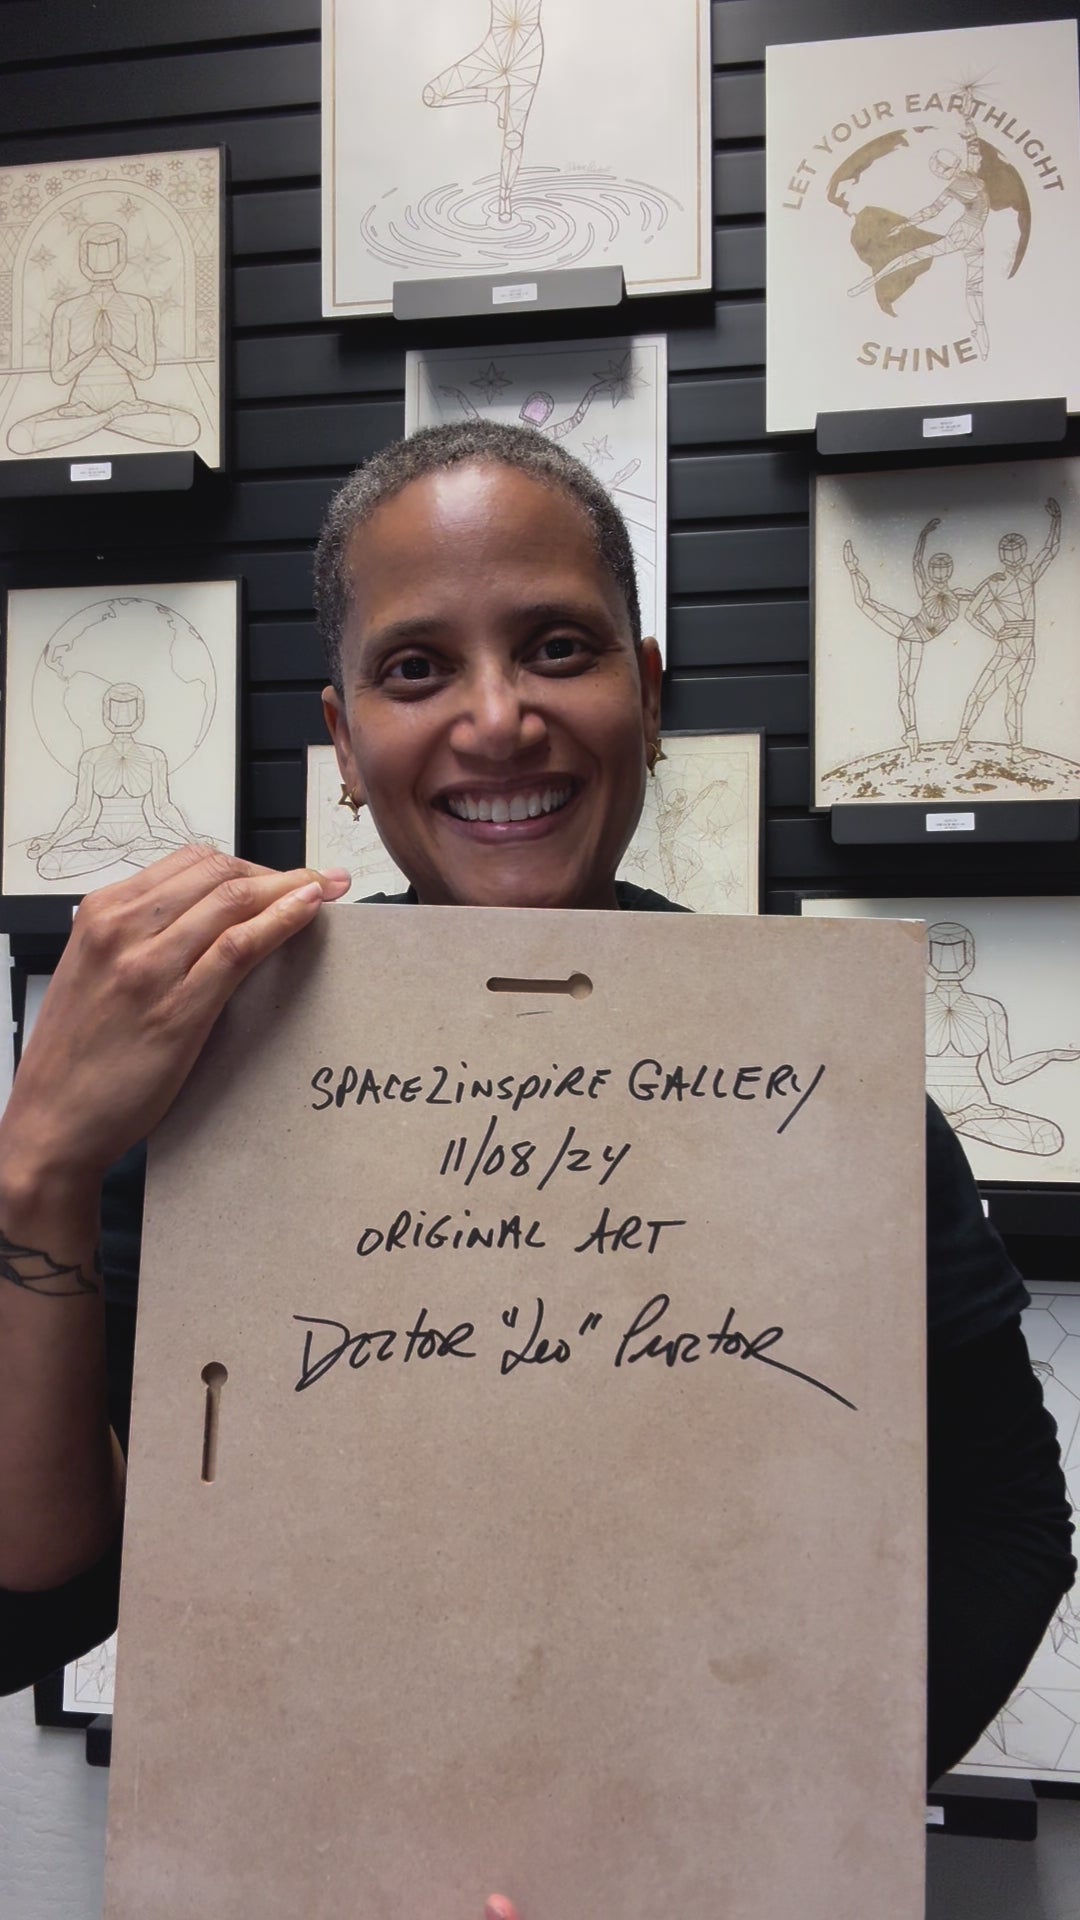 LET YOUR EARTHLIGHT
SHINE
SPACE2iNSPiRE GALLERY
11/08/24
ORiGiNAL ART
DOCTOR "Leo" PROCTOR